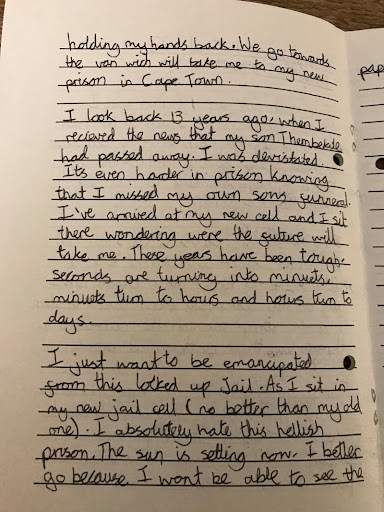 holding my hands back. We go towards
the van wich will take me to my new
prison in Cape Town.
I look back 13 years ago, when I
recieved the news that my son Thembekile
had passed away. I was devistated.
Its even harder in prison knowing
that I missed my own sons funneral.
I've arrived at my new cell and I sit
there wondering were the future will
take me. These years have been tough,
seconds are turning into minuets,
minuets turn to hours and hours turn to
days.
I just want to be emancipated
from this locked up Jail. As I sit in
my new jail cell (no better than my old
one). I absolutely hate this hellish
prison. The sun is setting now. I better
go because I wont be able to see the
pap